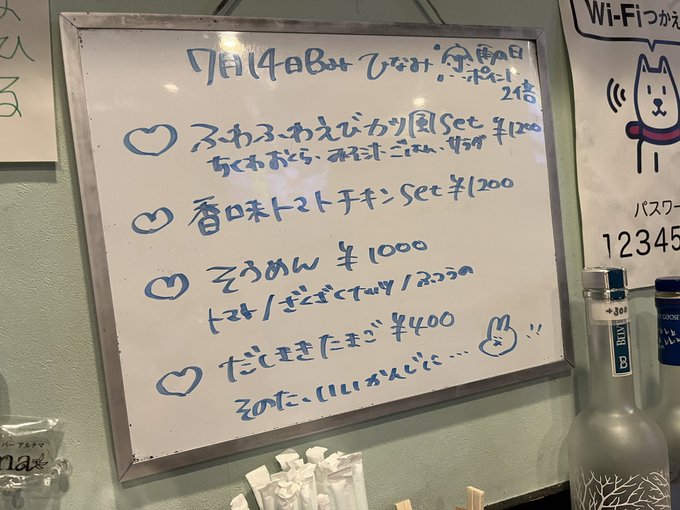 よひる
7月14日Bみ ひなみ 雨の日
ポイント
2倍
♡ ふわふわえびカツ風Set ¥1200
ちくわおくら、みそ汁、ごはん、サラダ
♡ 香味トマトチキンSet ¥1200
♡ そうめん ¥1000
トマト/ざくざくナッツ/ふつうの
♡ だしまきたまご ¥400
そのた、いいかんじに…
Wi-Fiつかえ
パスワー
12345
+300
BELV
B
GOOSE
バー アルテマ
na